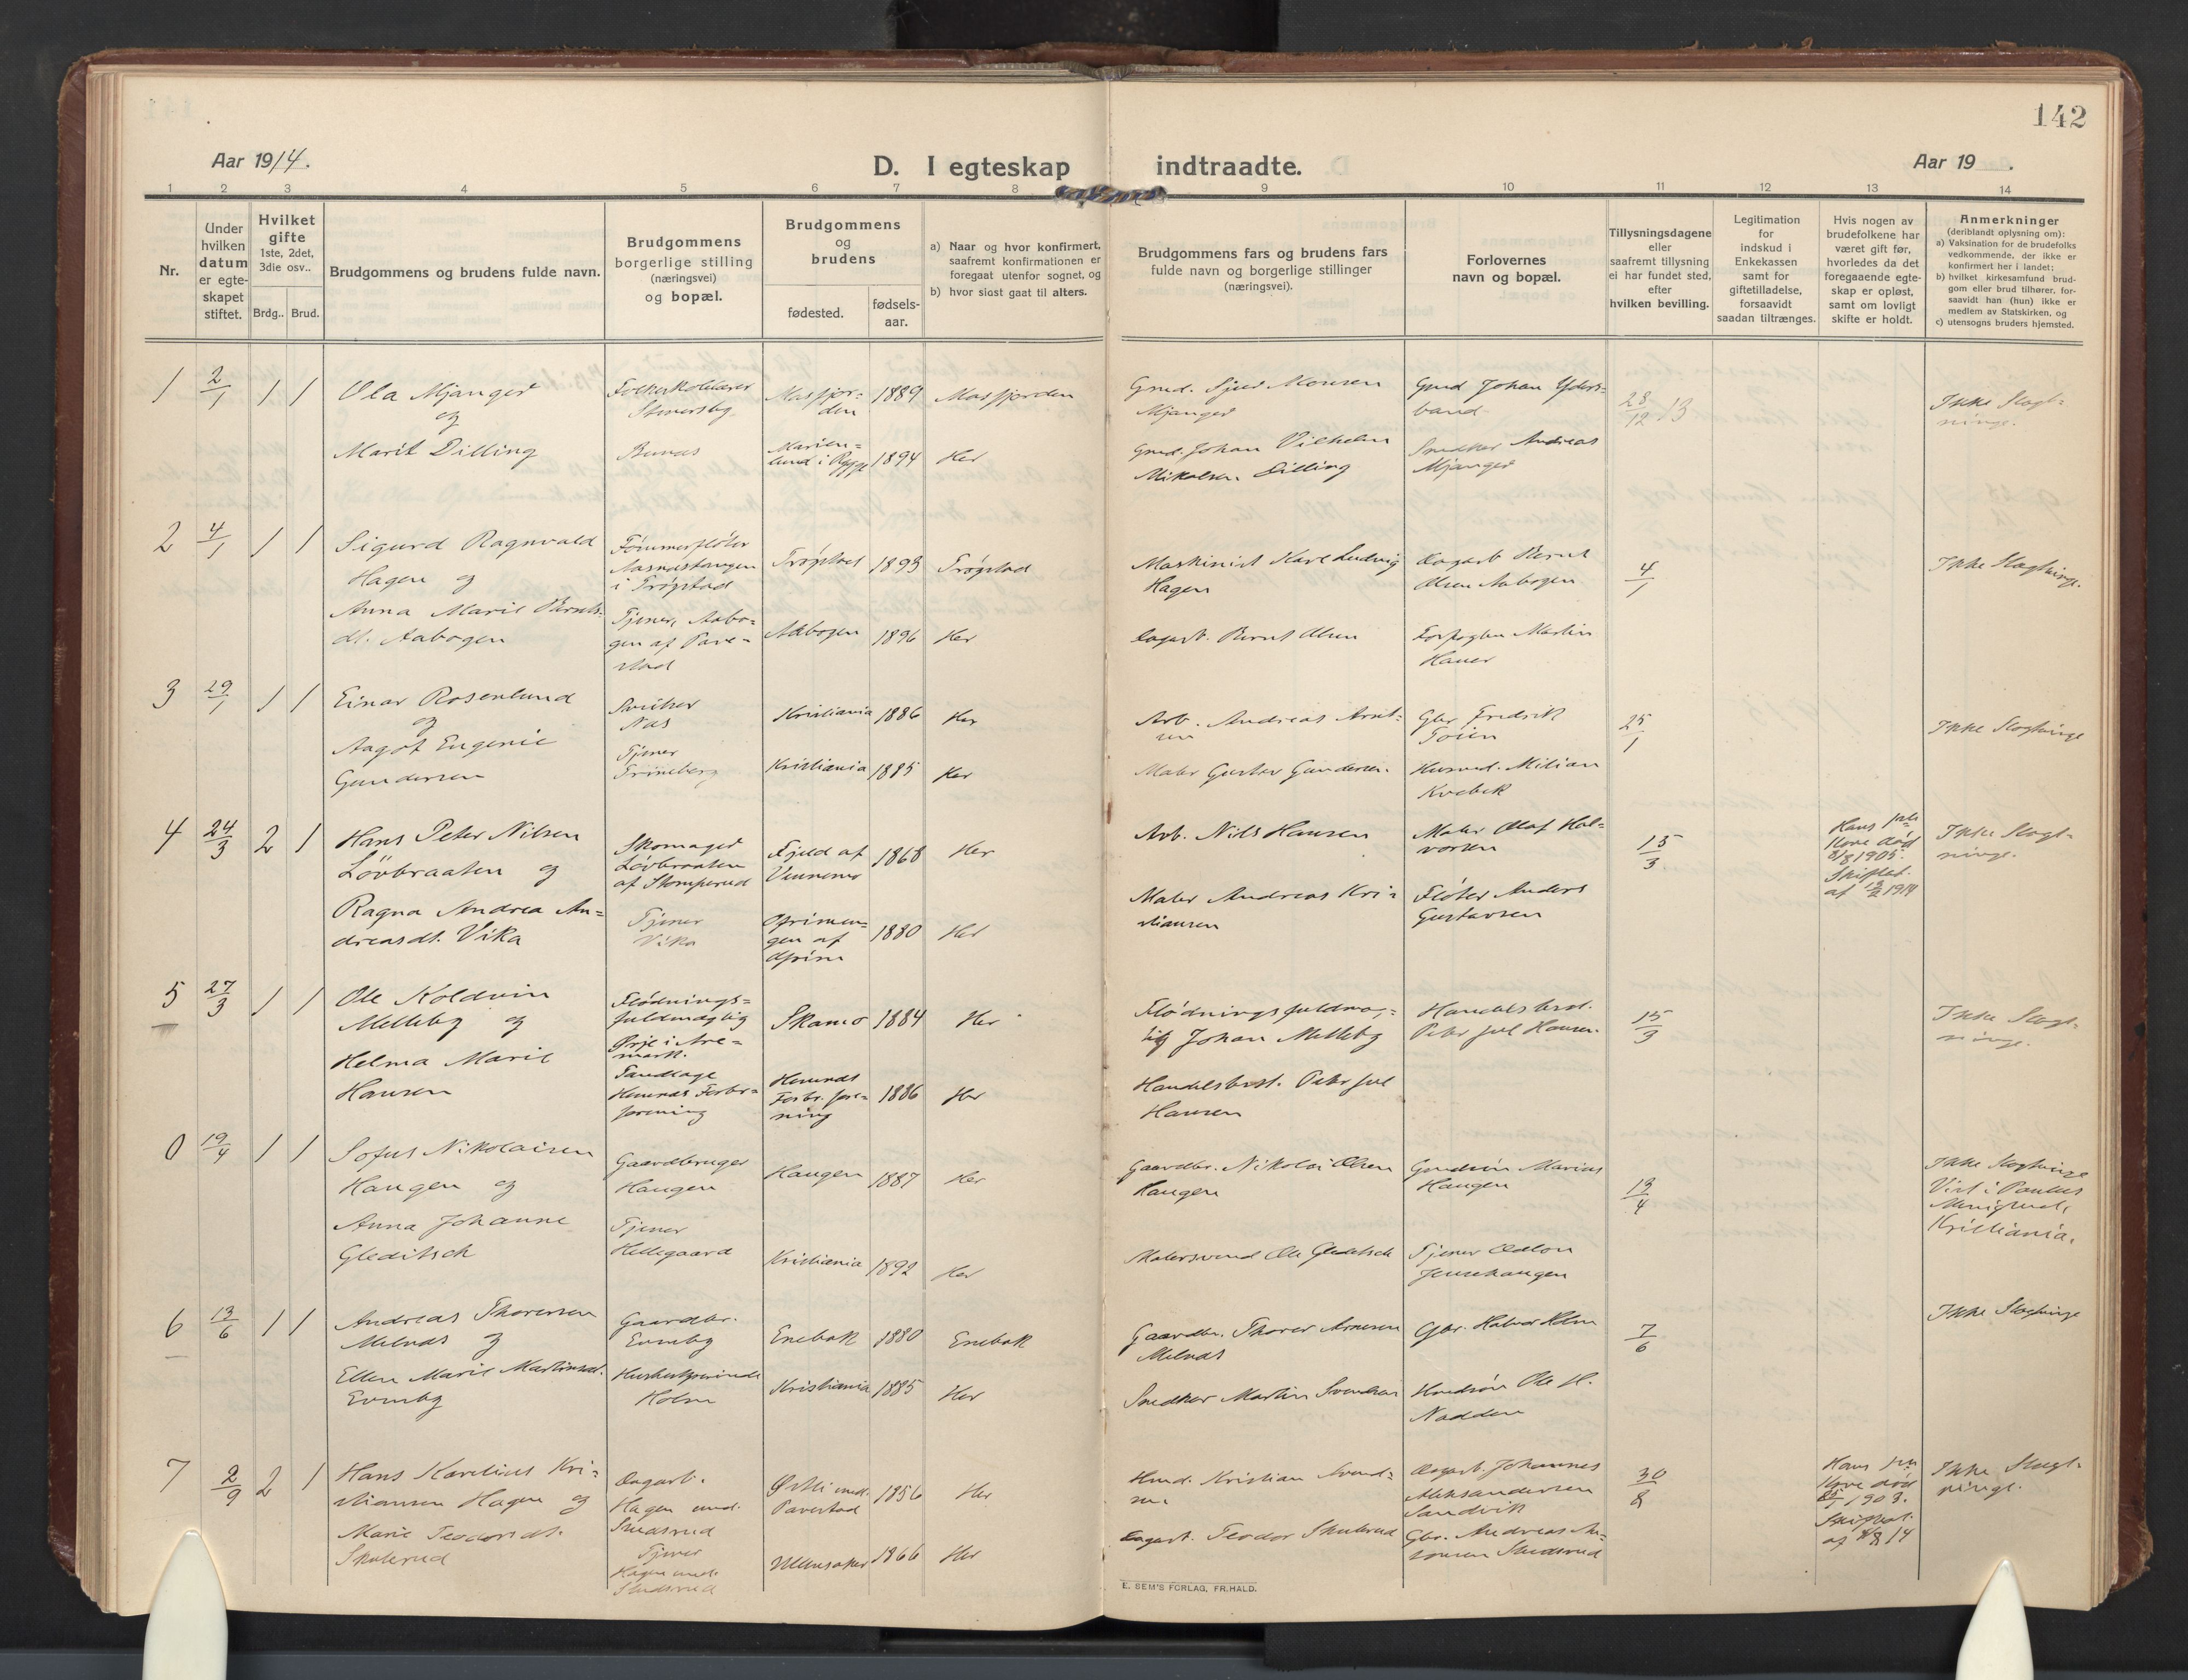 142
Aar 1914.
D. I egteskap indtraadte.
Aar 19 .
1 2 3 4 5 6 7 8 9 10 11 12 13 14
Nr.
Under
hvilken
datum
er egte-
skapet
stiftet.
Hvilket
gifte
1ste, 2det,
3die osv..
Brdg.. Brud.
Brudgommens og brudens fulde navn.
Brudgommens
borgerlige stilling
(næringsvei)
og bopæl.
Brudgommens
og
brudens
fødested.
fødsels-
aar.
a) Naar og hvor konfirmert,
saafremt konfirmationen er
foregaat utenfor sognet, og
b) hvor sidst gaat til alters.
Brudgommens fars og brudens fars
fulde navn og borgerlige stillinger
(næringsvei).
Forlovernes
navn og bopæl.
Tillysningsdagene
eller
saafremt tillysning
ei har fundet sted,
efter
hvilken bevilling.
Legitimation
for
indskud i
Enkekassen
samt for
giftetilladelse,
forsaavidt
saadan tiltrænges.
Hvis nogen av
brudefolkene har
været gift før,
hvorledes da det
foregaaende egte-
skap er opløst,
samt om lovligt
skifte er holdt.
Anmerkninger
(deriblandt oplysning om):
a) Vaksination for de brudefolks
vedkommende, der ikke er
konfirmert her i landet;
b) hvilket kirkesamfund brud-
gom eller brud tilhører, for-
saavidt han (hun) ikke er
medlem av Statskirken, og
c) utensogns bruders hjemsted.
1 2/1 1 1
Ola Mjanger
og
Marit Dilling
Masfjor=
den
1889
Masfjorden
Marien=
lund i Rygge
1894
Her
Gmd. Sjur Monsen
Mjanger
Gmd. Johan Vilhelm
Mikalsen Dilling
Snedker Andreas
Mjanger
28/12 13
Ikke Slegt=
ninge.
2 4/1 1 1
Sigurd Ragnvald
Hagen og
Anna Marie Bernts=
dt. Aabogen
Tømmerfløter
i Trøgstad
Tjener, Aabo=
gen af
Trøgstad
1893
Trøgstad
Aabogen
1896
Her
Maskinist Karl Ludvig
Hagen
Dagarb. Bernt Olsen
Dagarb. Bernt
Olsen Aabogen
Martin
4/1
Ikke Slegtninge.
3 29/1 1 1
Einar Rosenlund
og
Aagot Eugenie
Gundersen
Sveitser
Nes
Tjener
Kristiania
1886
Her
Kristiania
1885
Her
Arb. Andreas Arnt=
sen
Maler Gustav Gundersen
Gbr Fredrik
Toien
25/1
Ikke Slegtninge
4 24/3 2 1
Hans Peter Nilsen
Løvbraaten og
Ragna Andrea An=
dreasdt. Vika
Skomager
Løvbraaten
af Stomperud
Tjener
Vika
Fjeld af
1868
Her
1880
Her
Arb. Nils Hansen
Maler Andreas Kri=
stiansen
Maler Olaf Hal=
vorsen
Fløter Anders
Gustavsen
15/3
Hans
Kone død
8/8 1905.
Skifteat.
af 19/2 1914
Ikke Slegt=
ninge.
5 27/3 1 1
Ole Koldvin
Melleby og
Helma Marie
Hansen
Flødnings=
fuldmægtig
Ørje i Are=
mark.
Tandlæge
Hemnes Forbr=
forening
Skamo
1884
Her
Hemnes
Forbr. fore=
ning
1886
Her
Flødningsfuldmæg=
tig Johan Melleby
Handelsbest. Peter Jul
Hansen
Handelsbest.
Peter Jul Hansen
15/3
Ikke Slegt=
ninge.
0 19/4 1 1
Sofus Nikolaisen
Haugen og
Anna Johanne
Gleditsch
Gaardbruger
Haugen
Tjener
Hellegaard
Haugen
1887
Her
Kristiania
1892
Her
Gaardbr. Nikolai Olsen
Haugen
Malersvend Ole Gleditsch
Marius
Haugen
Tjener Odlon
Jensehaugen
13/4
Ikke Slegtninge
Viet i Paulus
Menighed,
Kristiania.
6 13/6 1 1
Andreas Thoresen
Melnes og
Ellen Marie Martinsdt.
Evenby
Gaardbr.
Evenby
Husholderinde
Holm
Enebak
1880
Enebak
Kristiania
1885
Her
Gaardbr. Thorer Arnesen
Melnes
Snedker Martin Svendsen
Gbr. Halvor Holm
Ole H.
Nadden
7/6
Ikke Slegtninge
7 2/9 2 1
Hans Karelius Kri=
stiansen Hagen og
Marie Teodorsdt.
Skulerud
Dagarb.
Hagen und.
Tjener
Hagen und.
Østli und.
Pavestad
1856
Her
Ullensaker
1866
Her
Hmd. Kristian Svend=
sen
Dagarb. Teodor Skulerud
Dagarb. Johannes
Aleksandersen
Sandvik
Gbr. Andreas
30/8
Hans
Kone død
1903.
Skifteat.
Ikke Slegt=
ninge.
E. SEM'S FORLAG, FR.HALD.